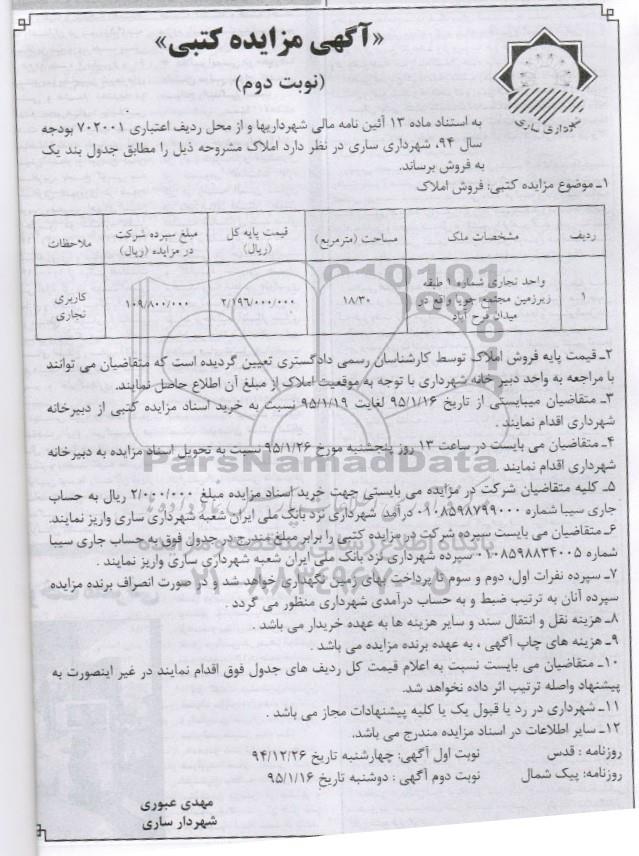 «آگهی مزایده کتبی»
(نوبت دوم)
شهرداری ساری
به استناد ماده ۱۳ آئین نامه مالی شهرداریها و از محل ردیف اعتباری ۷۰۲۰۰۱ بودجه
سال ۹۴، شهرداری ساری در نظر دارد املاک مشروحه ذیل را مطابق جدول بند یک
به فروش برساند.
۱ـ موضوع مزایده کتبی: فروش املاک
ردیف | مشخصات ملک | مساحت (مترمربع) | قیمت پایه کل (ریال) | مبلغ سپرده شرکت در مزایده (ریال) | ملاحظات
۱ | واحد تجاری شماره ۱ طبقه زیرزمین مجتمع جویا واقع در میدان فرح آباد | ۱۸/۳۰ | ۲/۱۹۶/۰۰۰/۰۰۰ | ۱۰۹/۸۰۰/۰۰۰ | کاربری تجاری
۲ـ قیمت پایه فروش املاک توسط کارشناسان رسمی دادگستری تعیین گردیده است که متقاضیان می توانند
با مراجعه به واحد دبیر خانه شهرداری با توجه به موقعیت املاک از مبلغ آن اطلاع حاصل نمایند.
۳ـ متقاضیان میبایستی از تاریخ ۹۵/۱/۱۶ لغایت ۹۵/۱/۱۹ نسبت به خرید اسناد مزایده کتبی از دبیرخانه
شهرداری اقدام نمایند .
۴ـ متقاضیان می بایست در ساعت ۱۳ روز پنجشنبه مورخ ۹۵/۱/۲۶ نسبت به تحویل اسناد مزایده به دبیرخانه
شهرداری اقدام نمایند .
ParsNamadData
۵ـ کلیه متقاضیان شرکت در مزایده می بایستی جهت خرید اسناد مزایده مبلغ ۲/۰۰۰/۰۰۰ ریال به حساب
جاری سیبا شماره ۰۱۰۸۵۹۸۷۹۹۰۰۰ درآمد شهرداری نزد بانک ملی ایران شعبه شهرداری ساری واریز نمایند.
۶ـ متقاضیان می بایست سپرده شرکت در مزایده کتبی را برابر مبلغ مندرج در جدول فوق به حساب جاری سیبا
شماره ۰۱۰۸۵۹۸۸۳۴۰۰۵ سپرده شهرداری نزد بانک ملی ایران شعبه شهرداری ساری واریز نمایند .
۷ـ سپرده نفرات اول، دوم و سوم تا پرداخت بهای زمین نگهداری خواهد شد و در صورت انصراف برنده مزایده
سپرده آنان به ترتیب ضبط و به حساب درآمدی شهرداری منظور می گردد .
۸ـ هزینه نقل و انتقال سند و سایر هزینه ها به عهده خریدار می باشد .
۹ـ هزینه های چاپ آگهی ، به عهده برنده مزایده می باشد .
۱۰ـ متقاضیان می بایست نسبت به اعلام قیمت کل ردیف های جدول فوق اقدام نمایند در غیر اینصورت به
پیشنهاد واصله ترتیب اثر داده نخواهد شد.
۱۱ـ شهرداری در رد یا قبول یک یا کلیه پیشنهادات مجاز می باشد .
۱۲ـ سایر اطلاعات در اسناد مزایده مندرج می باشد.
روزنامه : قدس نوبت اول آگهی: چهارشنبه تاریخ ۹۴/۱۲/۲۶
روزنامه: پیک شمال نوبت دوم آگهی : دوشنبه تاریخ ۹۵/۱/۱۶
مهدی عبوری
شهردار ساری